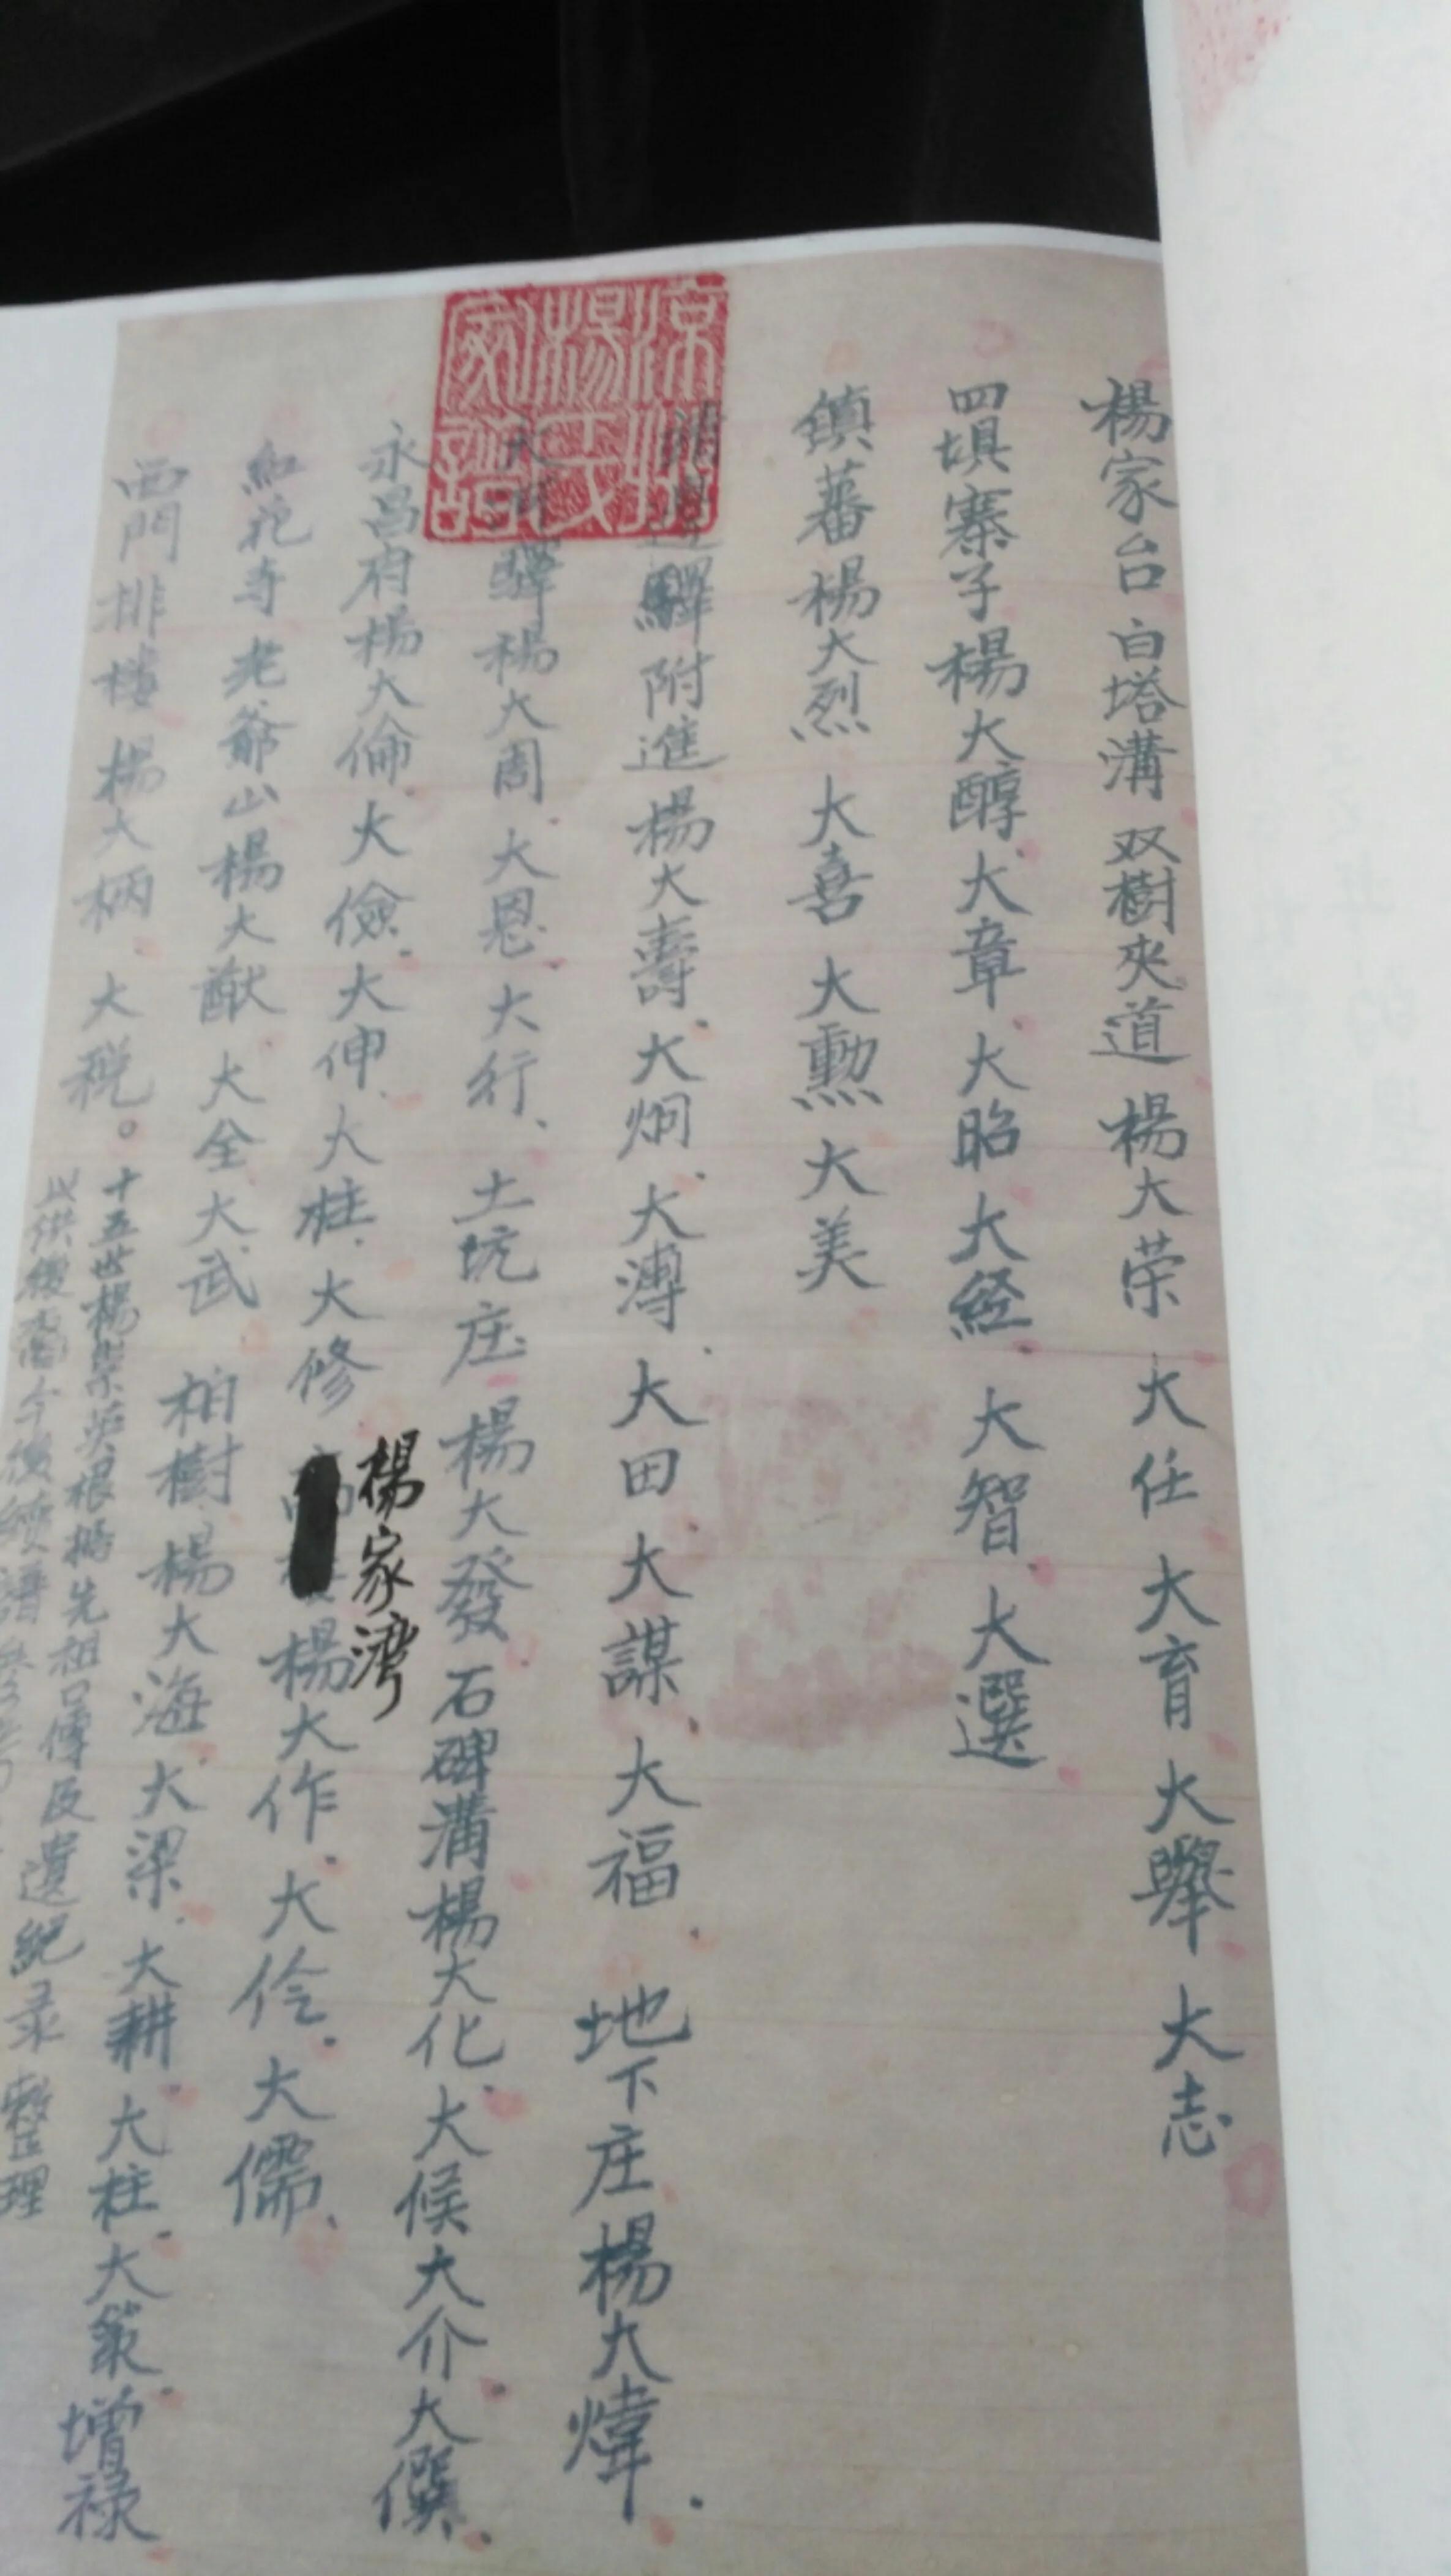 楊家台 白塔溝 双樹夾道 楊大荣 大任 大育 大舉 大志
四埧寨子楊大醇、大章、大昭 大经、大智、大選
鎮蕃楊大烈 大喜 大勲 大美
驛附進楊大壽、大炯、大溥、大田 大謀、大福、地下庄楊大煒.
大河驛楊大周、大恩、大行、土坑庄 楊大發 石碑溝楊大化、大候大介、大僎.
永昌府楊大倫、大儉、大伸、大柱、大修 楊大作、大伶、大儒.
楊家湾
紅花寺老爺山楊大猷 大全 大武 柏樹 楊大海、大梁、大耕、大柱、大策、增禄
西門排樓楊大柄、大税。
十五世楊崇英根據先祖口傳及遺紀录整理
以供後裔今後續譜
涼州楊氏家譜